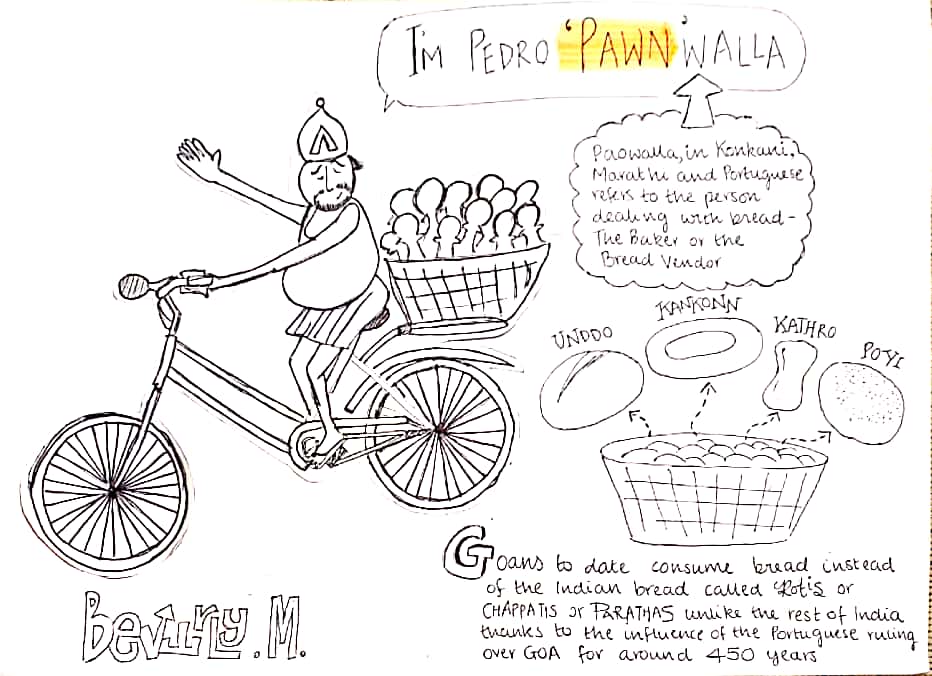 I'M PEDRO 'PAWN'WALLA
Paowalla, in Konkani,
Marathi and Portuguese
refers to the person
dealing with bread-
The Baker or the
Bread Vendor
UNDDO
KANKONN
KATHRO
POYI
Goans to date consume bread instead
of the Indian bread called Roti's or
CHAPPATIS or PARATHAS unlike the rest of India
thanks to the influence of the Portuguese ruling
over GOA for around 450 years
Beverly.M.